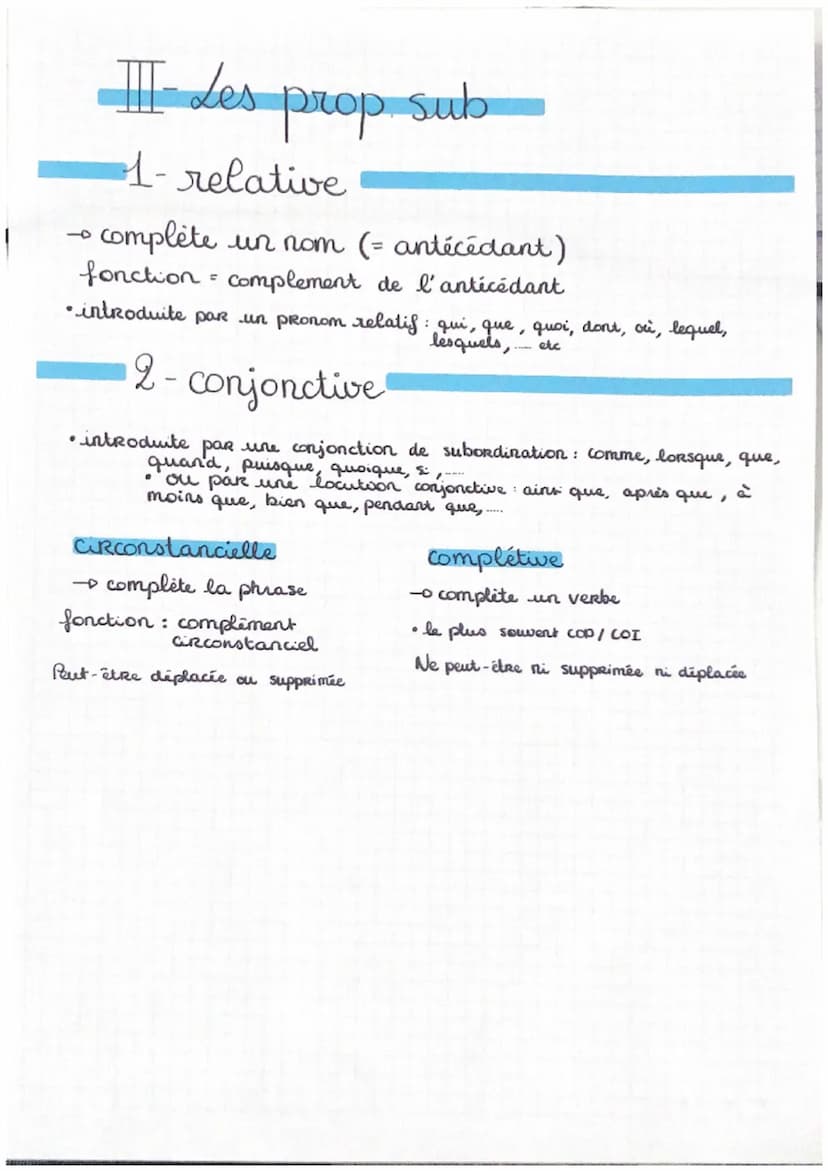 III- Les prop sub
1- relative
→ complète un nom (= antécédant)
fonction = complement de l'antécédant
• introduite par un pronom relatif : qui, que, quoi, dont, où, lequel,
lesquels, .... etc
2 - conjonctive
• introduite par une conjonction de subordination : comme, lorsque, que,
quand, puisque, quoique, si, .....
• ou par une locution conjonctive : ainsi que, après que, à
moins que, bien que, pendant que, .....
circonstancielle
→ complète la phrase
fonction : complément
circonstanciel
Peut-être déplacée ou supprimée
complétive
→ complète un verbe
• le plus souvent COD / COI
Ne peut-être ni supprimée ni déplacée